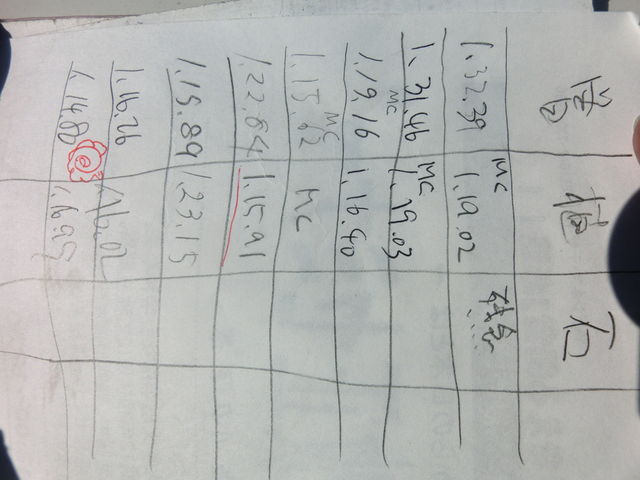 植 石
1.32.39 MC 1.19.02 残念...
1.31.46 MC 1.19.03
MC 1.19.16 1.16.40
MC 1.15.62 MC
1.22.84 1.15.91
1.15.89 1.23.15
1.16.26 1.16.02
1.14.80 1.16.95